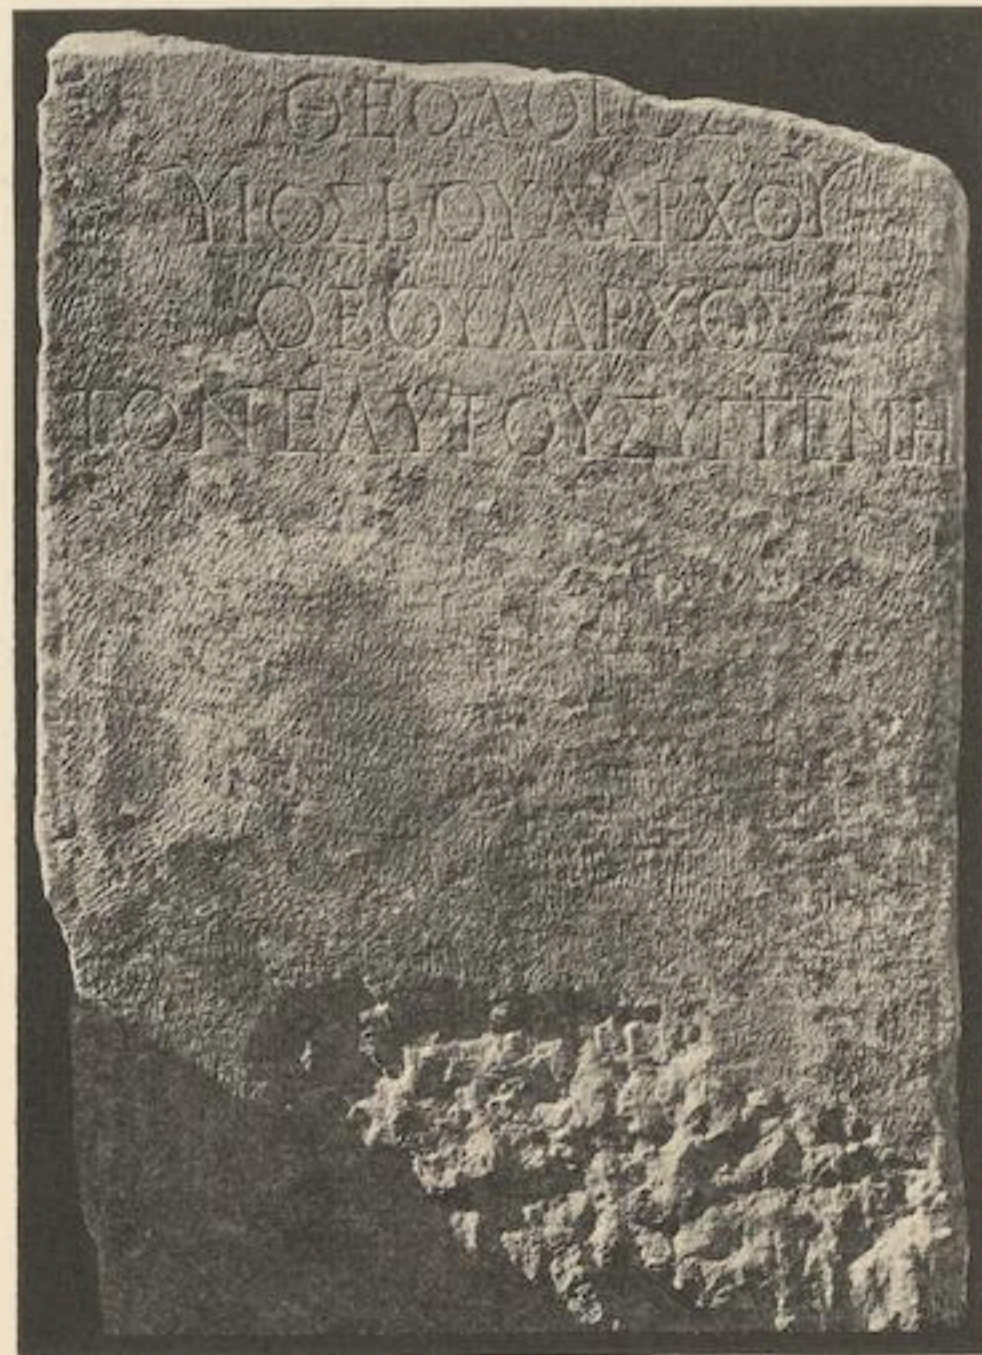 ΘΕΟΔΟΤΟΣ
ΥΙΟΣΒΟΥΛΑΡΧΟΥ
ΟΒΟΥΛΑΡΧΟΣ
ΤΟΝΕΑΥΤΟΥΣΥΓΓΕΝΗ